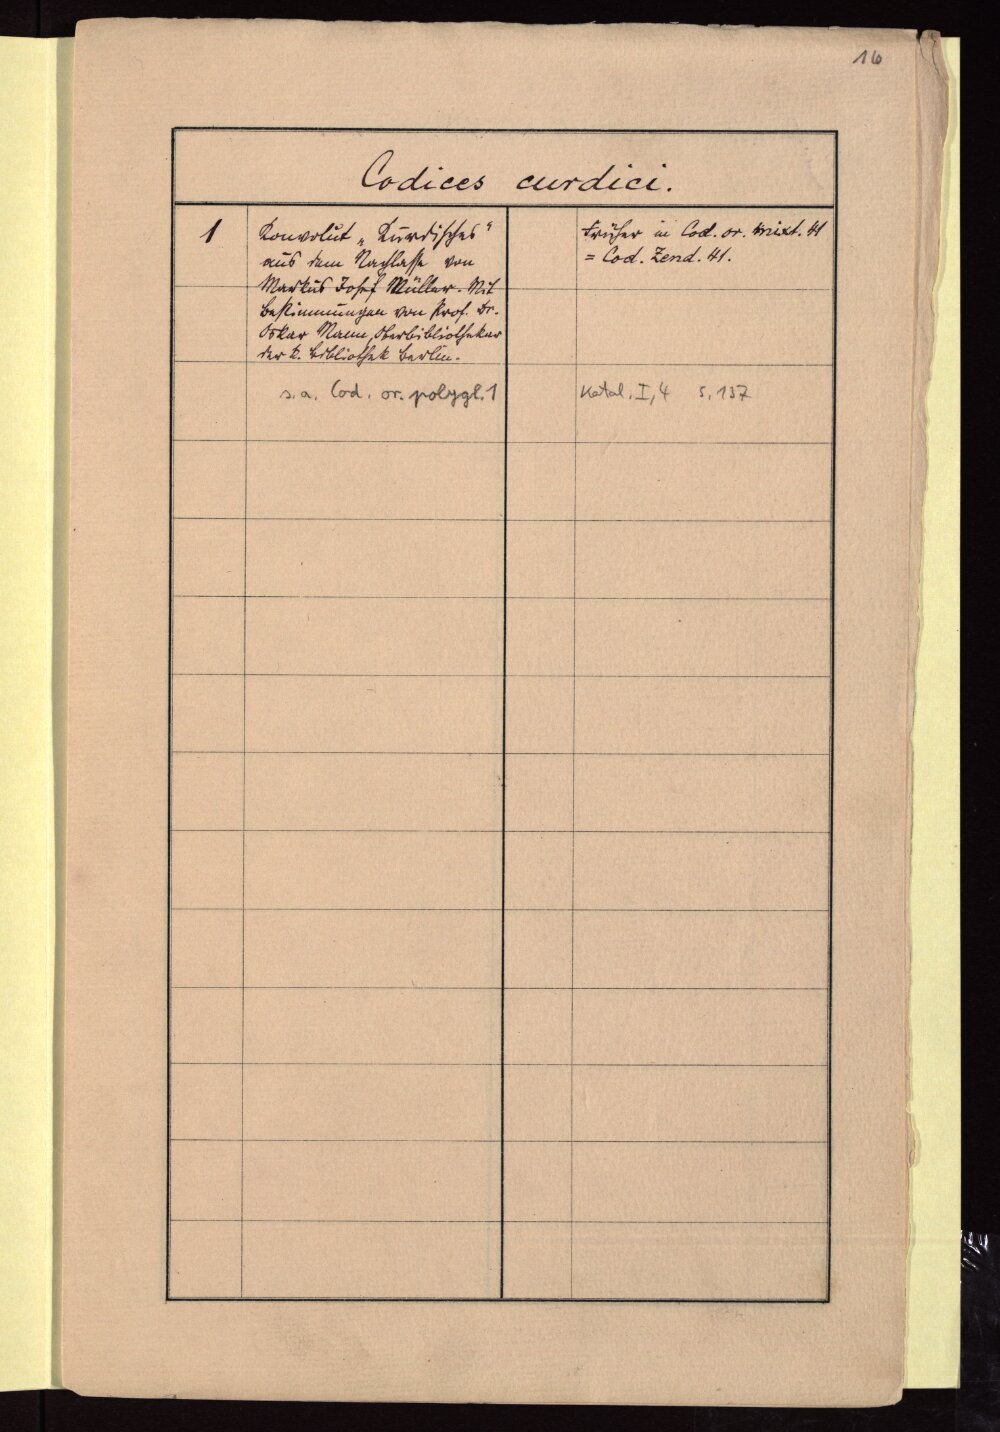 16
Codices curdici.
1
Konvolut „Kurdisches“
aus dem Nachlasse von
Markus Josef Müller. Mit
Bestimmungen von Prof. Dr.
Oskar Mann, Oberbibliothekar
der K. Bibliothek Berlin.
s. a. Cod. or. polygl. 1
Früher in Cod. or. mixt. 41
= Cod. Zend. 41.
Katal. I, 4 S. 137